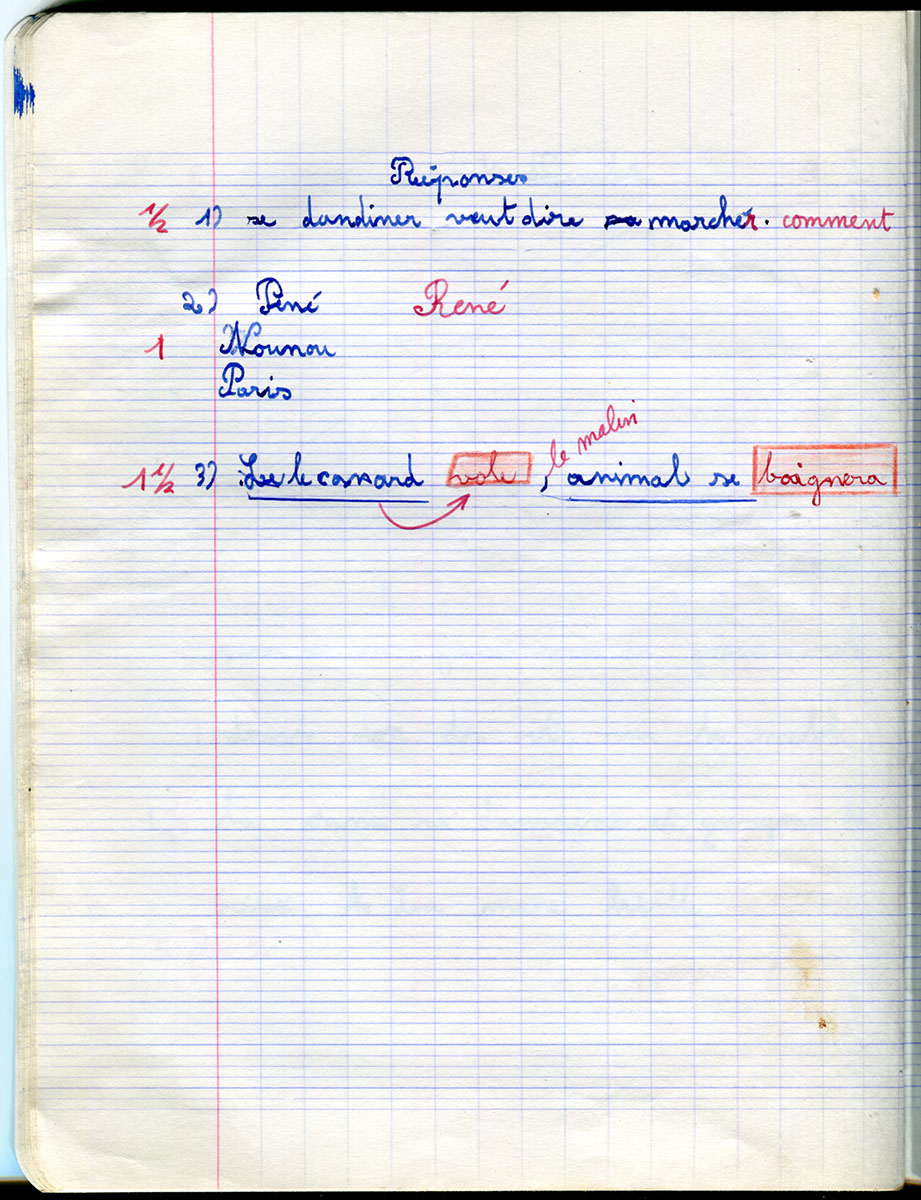 Réponses
1/2 1) se dandiner veut dire marcher. comment
2) Pené René
1 Nounou
Paris
le malin
1 1/2 3) Le le canard vole, animal se baignera